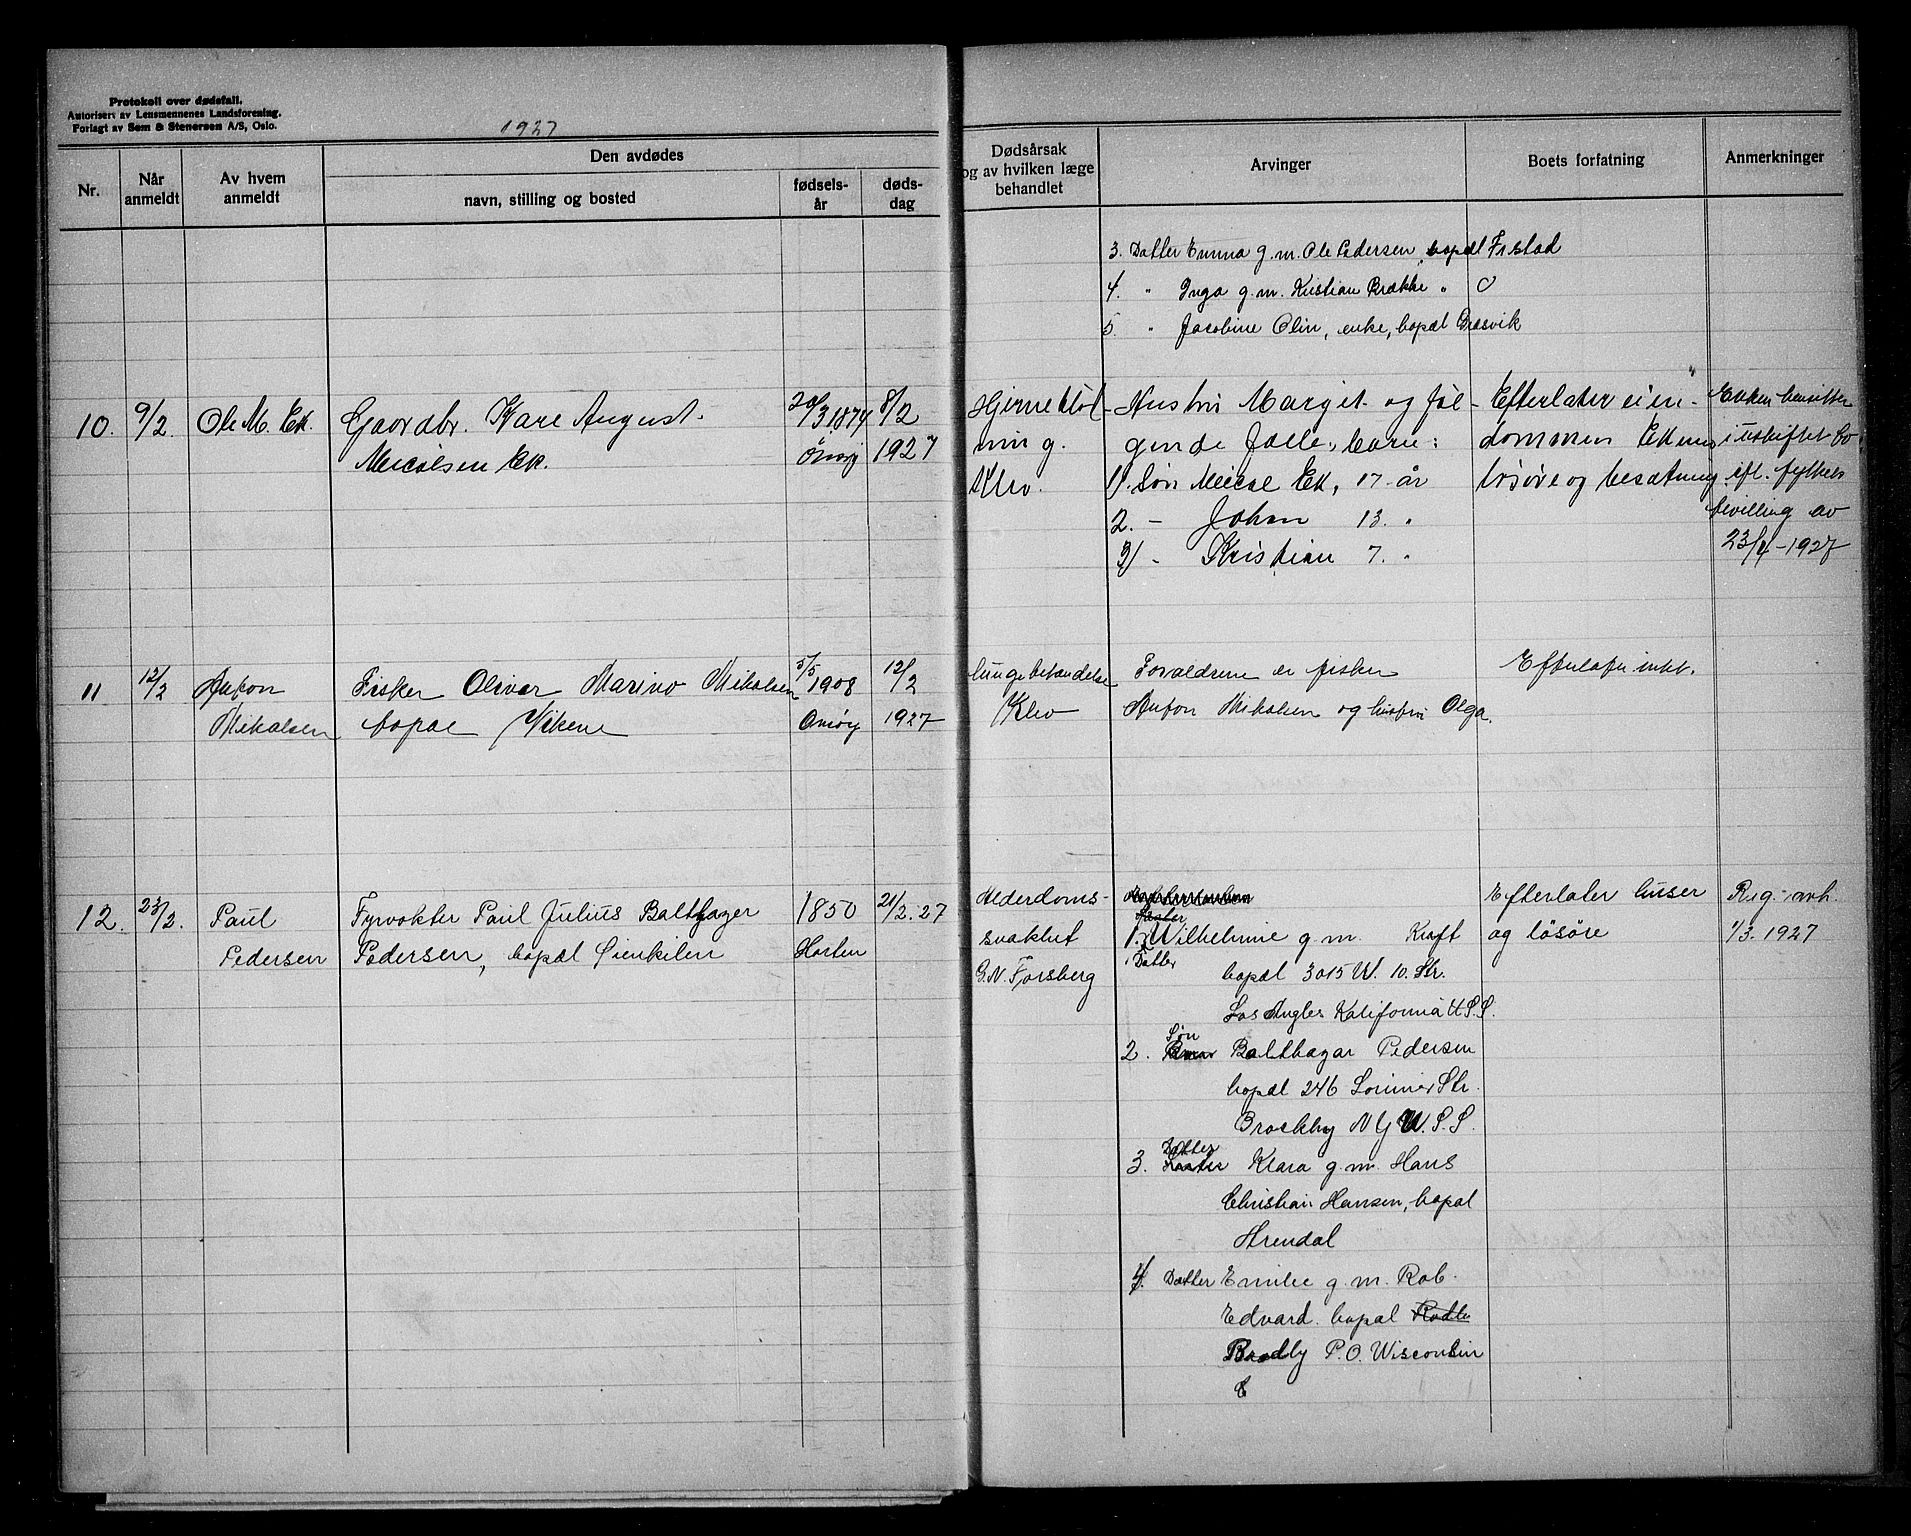 Protokoll over dødsfall.
Autorisert av Lensmennenes Landsforening.
Forlagt av Sem & Stenersen A/S, Oslo.
1927
Nr.
Når anmeldt
Av hvem anmeldt
Den avdødes
navn, stilling og bosted
fødsels-år
døds-dag
Dødsårsak og av hvilken læge behandlet
Arvinger
Boets forfatning
Anmerkninger
3. Datter Emma g.m. Ole Pedersen, bopæl Fr.stad
4. " Inga g.m. Kristian Brække "
5. " Jacobine Olin, enke, bopæl Græsvik
10. 9/2. Ole M. Ek. Gaardbr. Kare August
Micalsen Ek.
20/3 1874
Onsøy
8/2
1927
Hjerneblød-
ning.
Klev.
Hustru Margit og føl-
gende fælles barn:
1). Søn Micael Ek, 17 år
2. - Johan 13. "
3) - Kristian 7. "
Efterlater eien-
dommen Ek
løsøre og besætning
Enken besitter
i uskiftet bo
efl. fylkets
bevilling av
23/4-1927
11 12/2 Anton
Mikalsen
Fisker Oliver Marino Mikalsen
bopæl Viken
5/5 1908
Onsøy
12/2
1927
Lungebetændelse
Klev
Forældrene er fisker
Anton Mikalsen og hustru Olga.
Efterlater intet.
12. 23/2. Paul
Pedersen
Fyrvokter Paul Julius Balthazer
Pedersen, bopæl Oienkilen
1850
Horten
21/2. 27
Alderdoms-
svakhet
G.N. Forsberg
1. Wilhelmine g.m. Kraft
Datter bopæl 3015 W. 10. Str.
Los Angles Kalifornia U.S.S.
2. Søn Balthazar Pedersen
bopæl 246 Lorimer Str.
N Y U.S.S.
3. Datter Klara g.m. Hans
Christian Hansen, bopæl
Arendal
4. Datter Emilie g.m. Rob.
Edvard. bopæl
Bradly P.O. Wisconsin
Efterlater huser
og løsøre
Reg. avh.
1/3. 1927